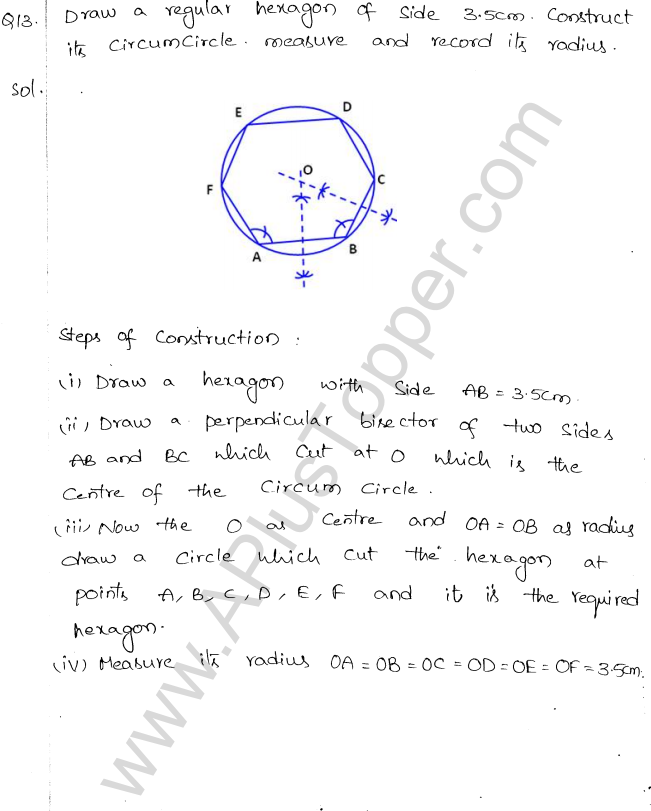 Q13. Draw a regular hexagon of side 3.5cm. Construct
its CircumCircle. measure and record its radius.
Sol.
E
D
O
F
C
A
B
Steps of Construction :
(i) Draw a hexagon with side AB = 3.5cm.
(ii) Draw a perpendicular bisector of two sides
AB and BC which cut at O which is the
Centre of the Circum Circle.
(iii) Now the O as Centre and OA = OB as radius
draw a Circle which cut the hexagon at
points A, B, C, D, E, F and it is the required
hexagon.
(iv) Measure its radius OA = OB = OC = OD = OE = OF = 3.5cm.
www.APlusTopper.com